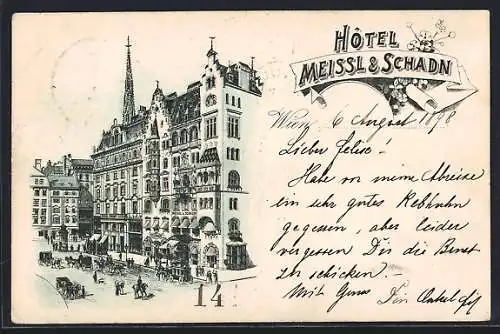 HÔTEL
MEISSL & SCHADN
Wien 6 August 1898
Lieber Felix!
Habe vor meine Abreise
ein sehr gutes Rebhuhn
gegessen, aber leider
vergessen Dir die Brust
zu schicken.
Mit Gruss Dein Onkel
14